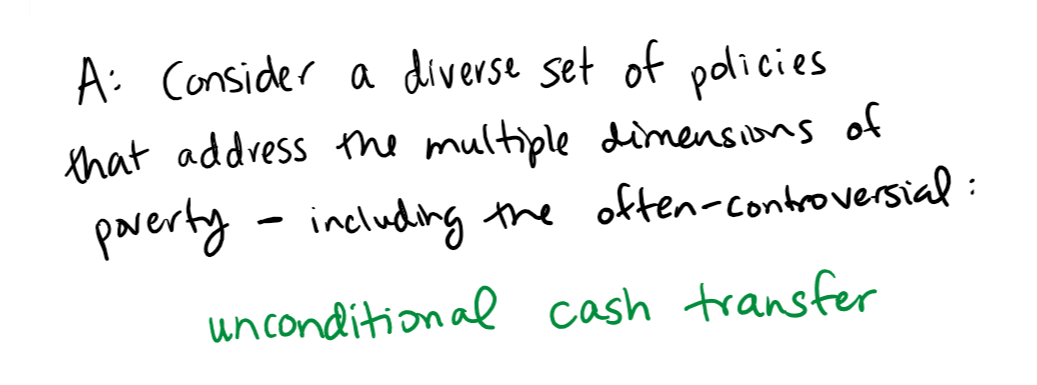 A: Consider a diverse set of policies
that address the multiple dimensions of
poverty - including the often-controversial:
unconditional cash transfer